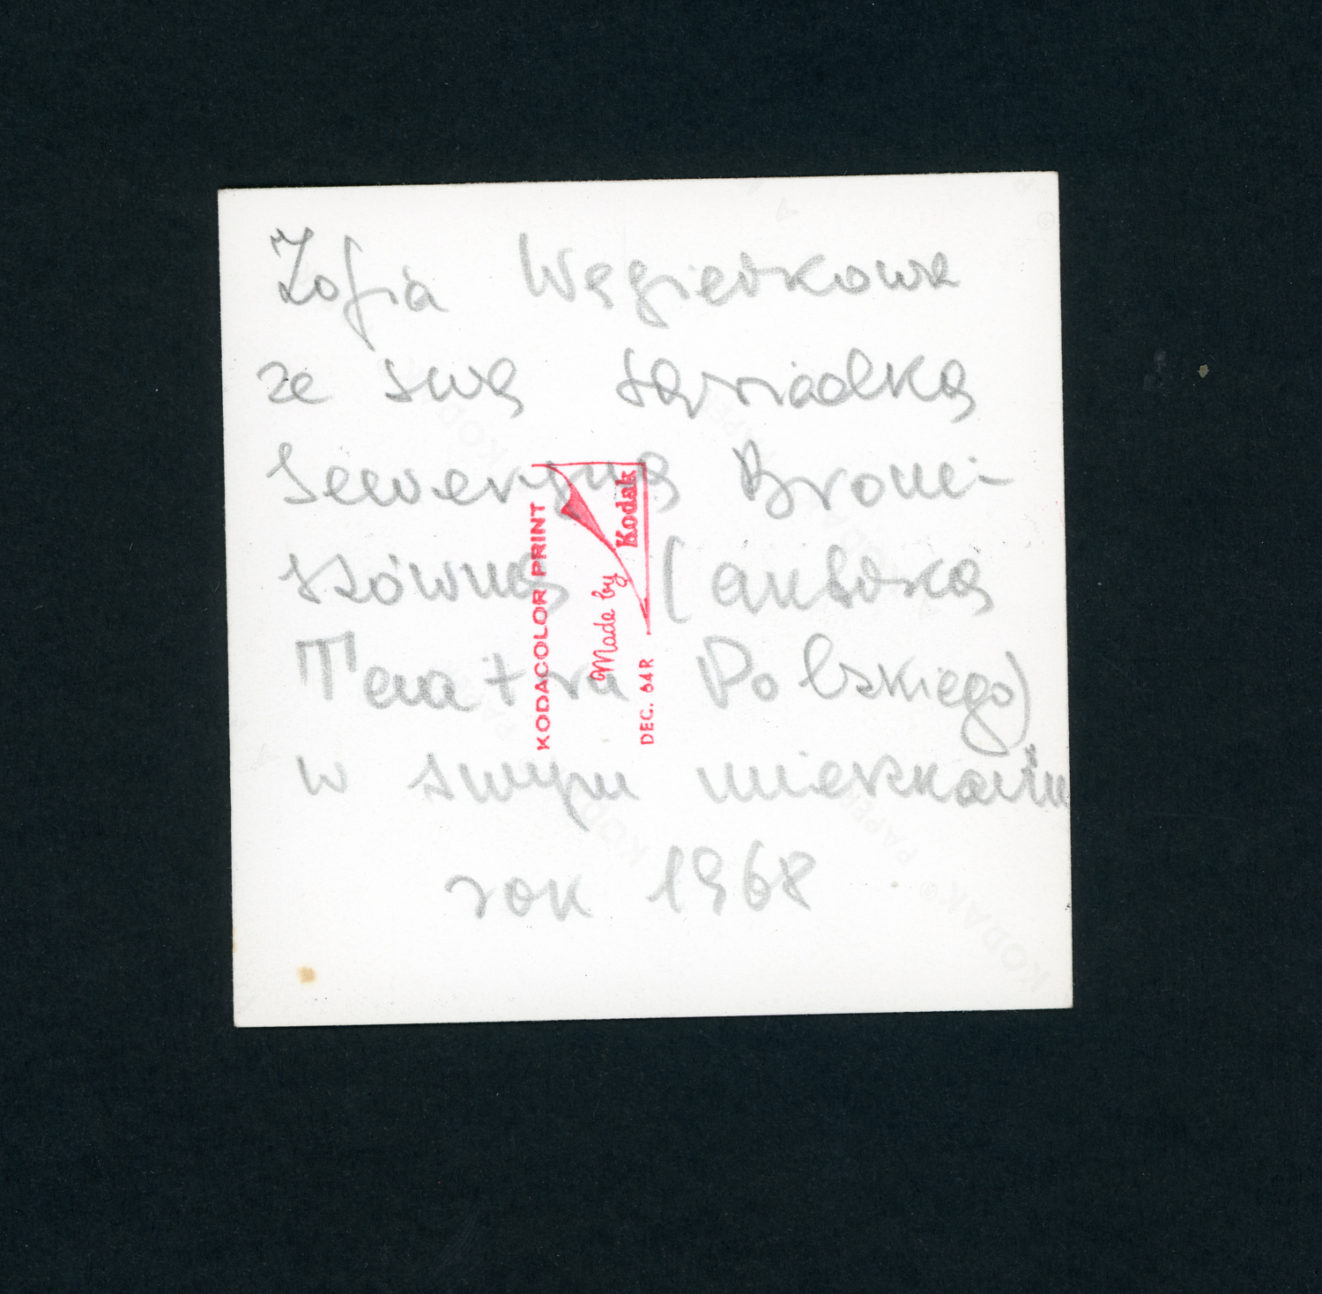 Zofia Węgierkowa
ze swą sąsiadką
Seweryną Broni-
szówną (aktorką
Teatru Polskiego)
w swym mieszkaniu
rok 1968
KODACOLOR PRINT
Made by Kodak
DEC. 64R